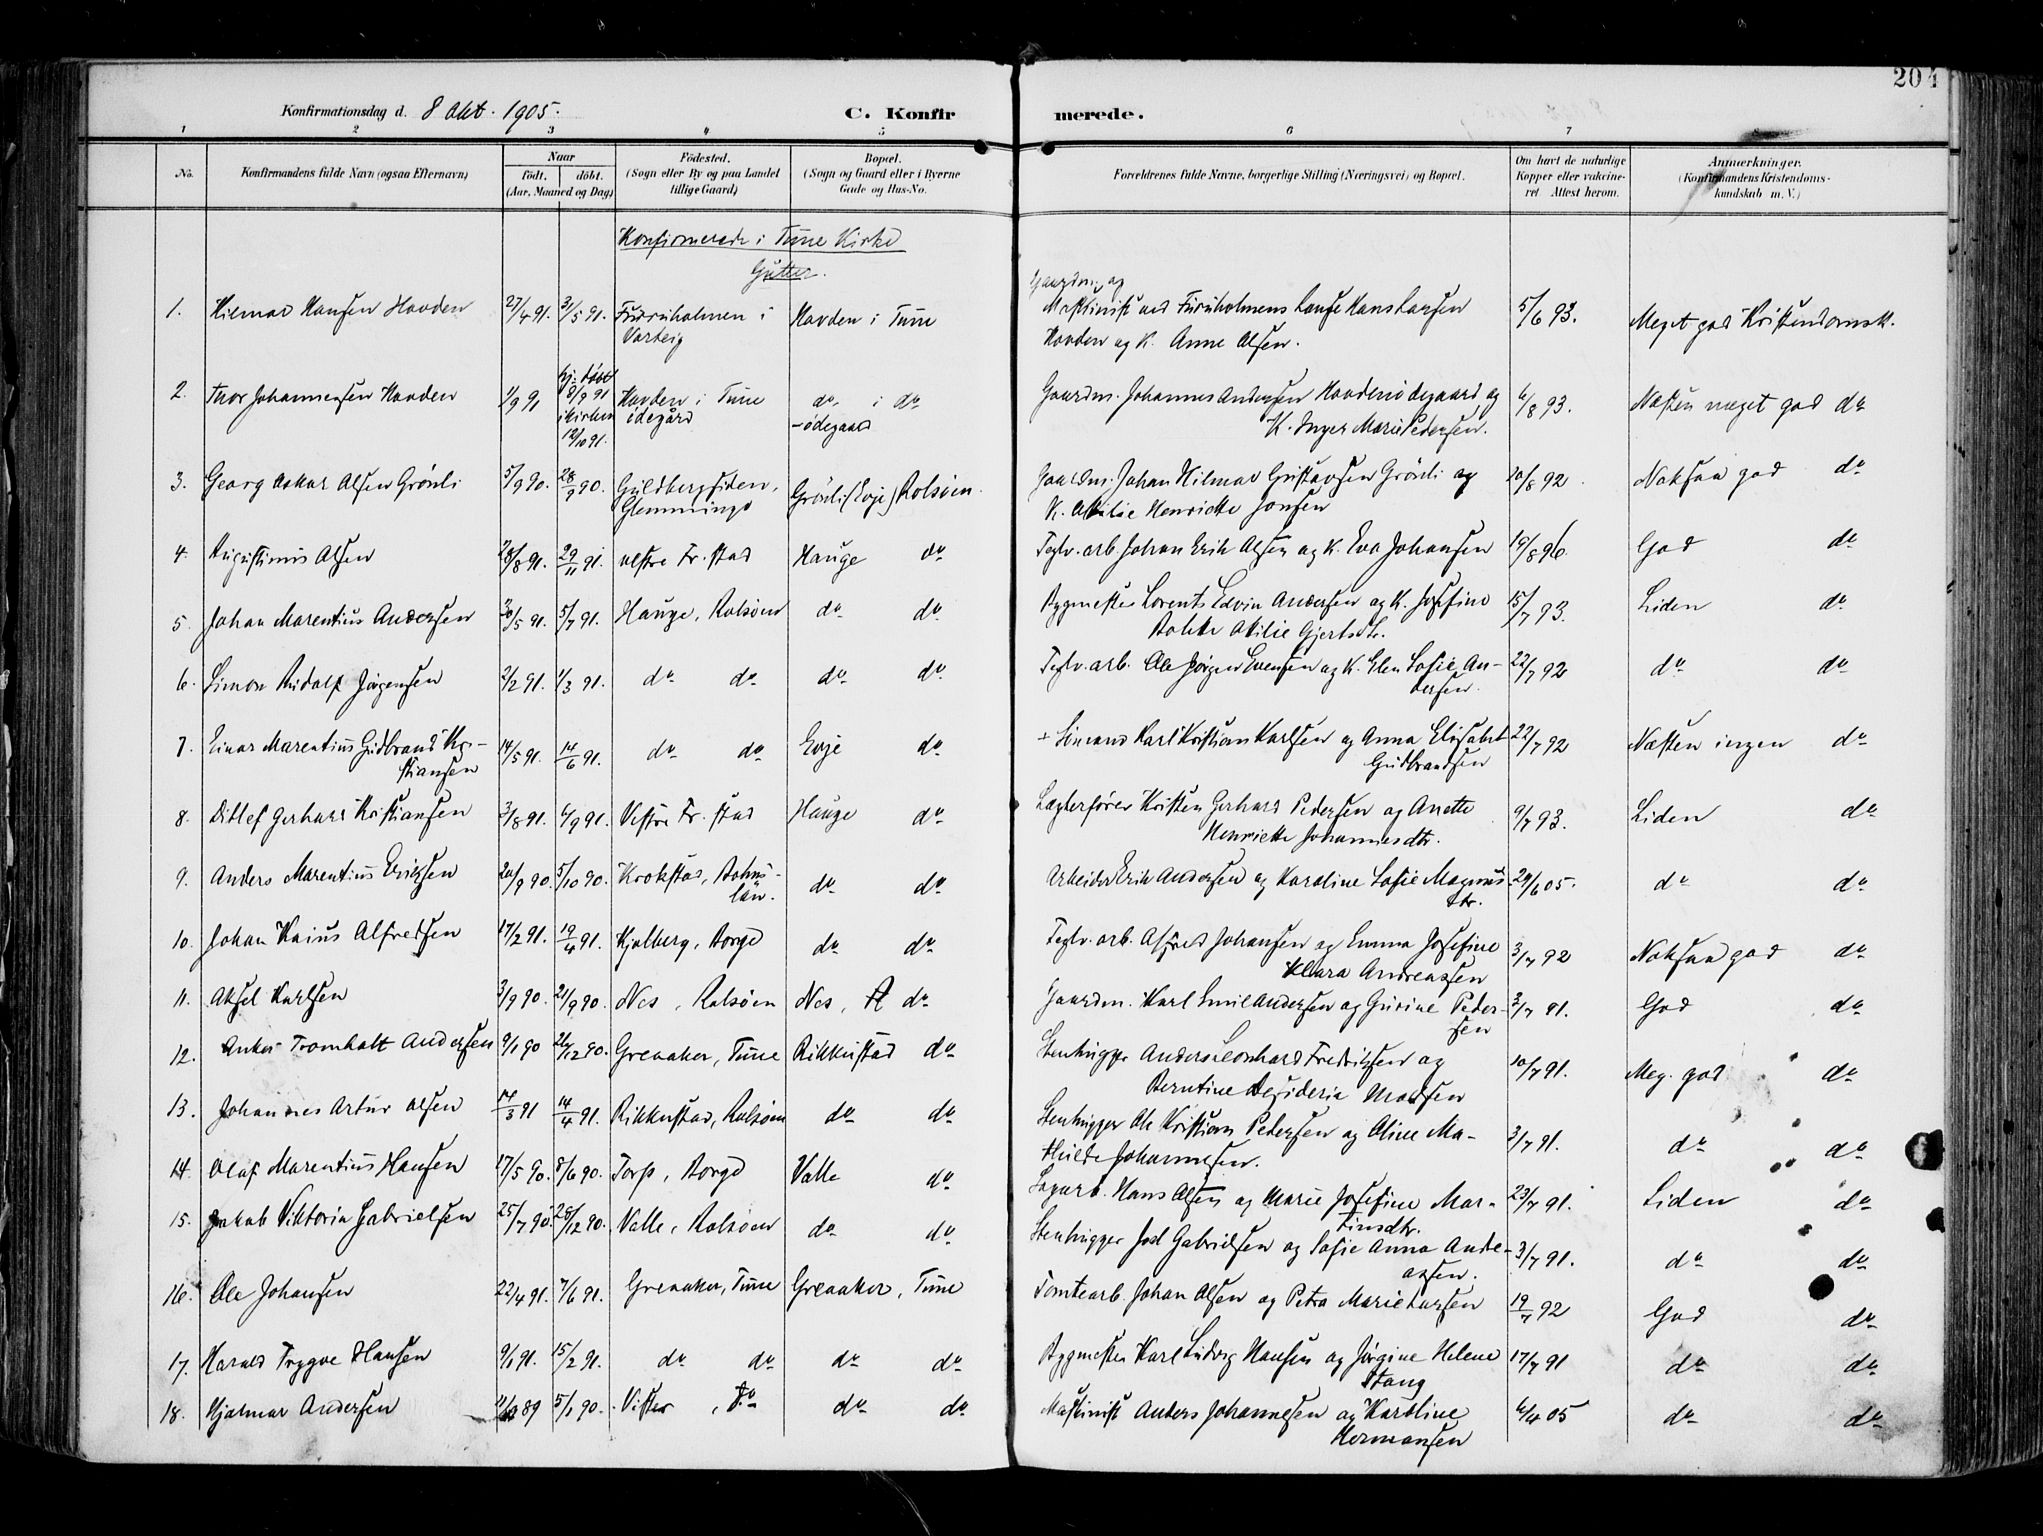 204
Konfirmationsdag d. 8 Okt. 1905. C. Konfirmerede.
1 2 3 4 5 6 7
No. Konfirmandens fulde Navn (ogsaa Efternavn) Naar født. døbt. (Aar, Maaned og Dag) Födested. (Sogn eller By og paa Landet tillige Gaard) Bopæl. (Sogn og Gaard eller i Byerne Gade og Hus-No. Forældrenes fulde Navne, borgerlige Stilling (Næringsvei) og Bopæl. Om havt de naturlige Kopper eller vakcineret Attest herom. Anmærkninger. (Konfirmandens Kristendomskundskab m. V.)
Konfirmerede i Tune Kirke
Gutter.
1. Hilmar Hansen Hovden 27/4 91. 31/5 91. Furuholmen i Varteig Hovden i Tune Gaardm. og Maskinist ved Furuholmens Lense Hans Larsen Hovden og K. Anne Olsen. 5/6 93. Meget god Kristendomsk.
2. Thor Johannessen Hovden 1/9 91 hj. døbt 8/9 91 i kirken 18/10 91. Hovden i Tune ødegård do. i do -ødegaard Gaardm. Johannes Andersen Hovdenødegaard og K. Inger Marie Pedersen. 6/8 93. Næsten meget god do
3. Georg Oskar Olsen Grönli 5/9 90. 28/9 90. Guldbergsiden, Glemminge Grönli (Evje) Rolsöen. Gaardm. Johan Hilmar Gustavsen Grönli og K. Otilie Henriette Jonsen 20/8 92 Noksaa god do
4. Augustinus Olsen 28/8 91. 29/11 91. vestre Fr.stad Hauge do Teglv. arb. Johan Erik Olsen og K. Eva Johansen 19/8 96. God do
5. Johan Marentius Andersen 20/5 91. 5/7 91. Hauge, Rolsöen do do Bygmester Lorents Edvin Andersen og K. Josefine Bolette Otilie Gjertsdtr. 15/7 93. Liden do
6. Simon Rudolf Jörgensen 2/2 91. 1/3 91. do do do do Teglv. arb. Ole Jörgen Evensen og K. Elen Sofie Andersen. 22/7 92 do do
7. Einar Marentius Gudbrand Kristiansen 14/5 91. 14/6 91. do do Evje do + Sömand Karl Kristian Karlsen og Anna Elisabet Gudbrandsen 22/7 92 Næsten ingen do
8. Ditlef Gerhard Kristiansen 3/8 91. 6/9 91. Vestre Fr.stad Hauge do Lægterfører Kristen Gerhard Pedersen og Anette Henriette Johannesdtr. 9/7 93. Liden do
9. Anders Marentius Eriksen 20/9 90. 5/10 90. Krokstad, Bohuslän. do do Arbeider Erik Andersen og Karoline Sofie Magnusdtr. 29/6 05. do do
10. Johan Kaius Alfredsen 17/2 91. 19/4 91. Kjølberg, Borge do do Teglv. arb. Alfred Johansen og Emma Josefine Klara Andreassen 3/7 92 Noksaa god do
11. Aksel Karlsen 3/9 90. 21/9 90. Nes, Rolsöen Nes, do Gaardm. Karl Emil Andersen og Gurine Pedersen 3/7 91. God do
12. Anker Tromholt Andersen 9/1 90 26/12 90. Greaaker, Tune Rikkustad do Stenhugger Anders Leonhard Fredriksen og Berntine Desideria Madsen 10/7 91. Meg. god do
13. Johannes Artur Olsen 14/3 91 14/4 91. Rikkustad, Rolsöen do do Stenhugger Ole Kristian Pedersen og Oline Mathilde Johannesen. 3/7 91. do do
14. Olaf Marentius Hansen 17/5 90. 8/6 90. Torp, Borge Valle do Sagarb. Hans Olsen og Marie Josefine Martinsdtr. 23/7 91. Liden do
15. Jakob Viktoria Gabrielsen 25/7 90. 26/12 90. Valle, Rolsöen do do Stenhugger Joel Gabrielsen og Sofie Anna Andreassen. 3/7 91. do do
16. Ole Johansen 22/4 91. 7/6 91. Greaaker, Tune Greaaker, Tune Tomtearb. Johan Olsen og Petra Marie Larsen 19/7 92 God do
17. Harald Trygve Hansen 9/1 91. 15/2 91. do do do do Bygmester Karl Ludvig Hansen og Jörgine Helene Stang 17/7 91 do do
18. Hjalmar Andersen 89 5/1 90. Vister, do do do Maskinist Anders Johannesen og Karoline Hermansen 6/4 05 do do